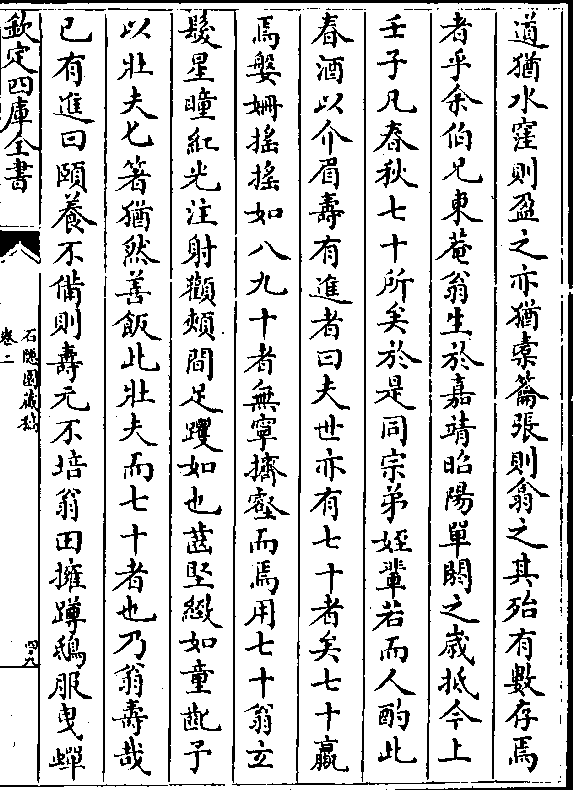 道猶水窪則盈之亦猶橐籥張則翕之其殆有數存焉
者乎余伯兄東菴翁生於嘉靖昭陽單閼之歲抵今上
壬子凡春秋七十所矣於是同宗弟姪輩若而人酌此
春酒以介眉壽有進者曰夫世亦有七十者矣七十羸
焉媻姍搖搖如八九十者無寧擠壑而焉用七十翁立
髮星瞳紅光注射顴頰間足躩如也齒堅緻如童齔予
以壯夫匕箸猶然善飯此壯夫而七十者也乃翁壽哉
已有進曰頤養不備則壽元不培翁田擁蹲鴟服曳蟬
欽定四庫全書
石隱園藏稿
卷二